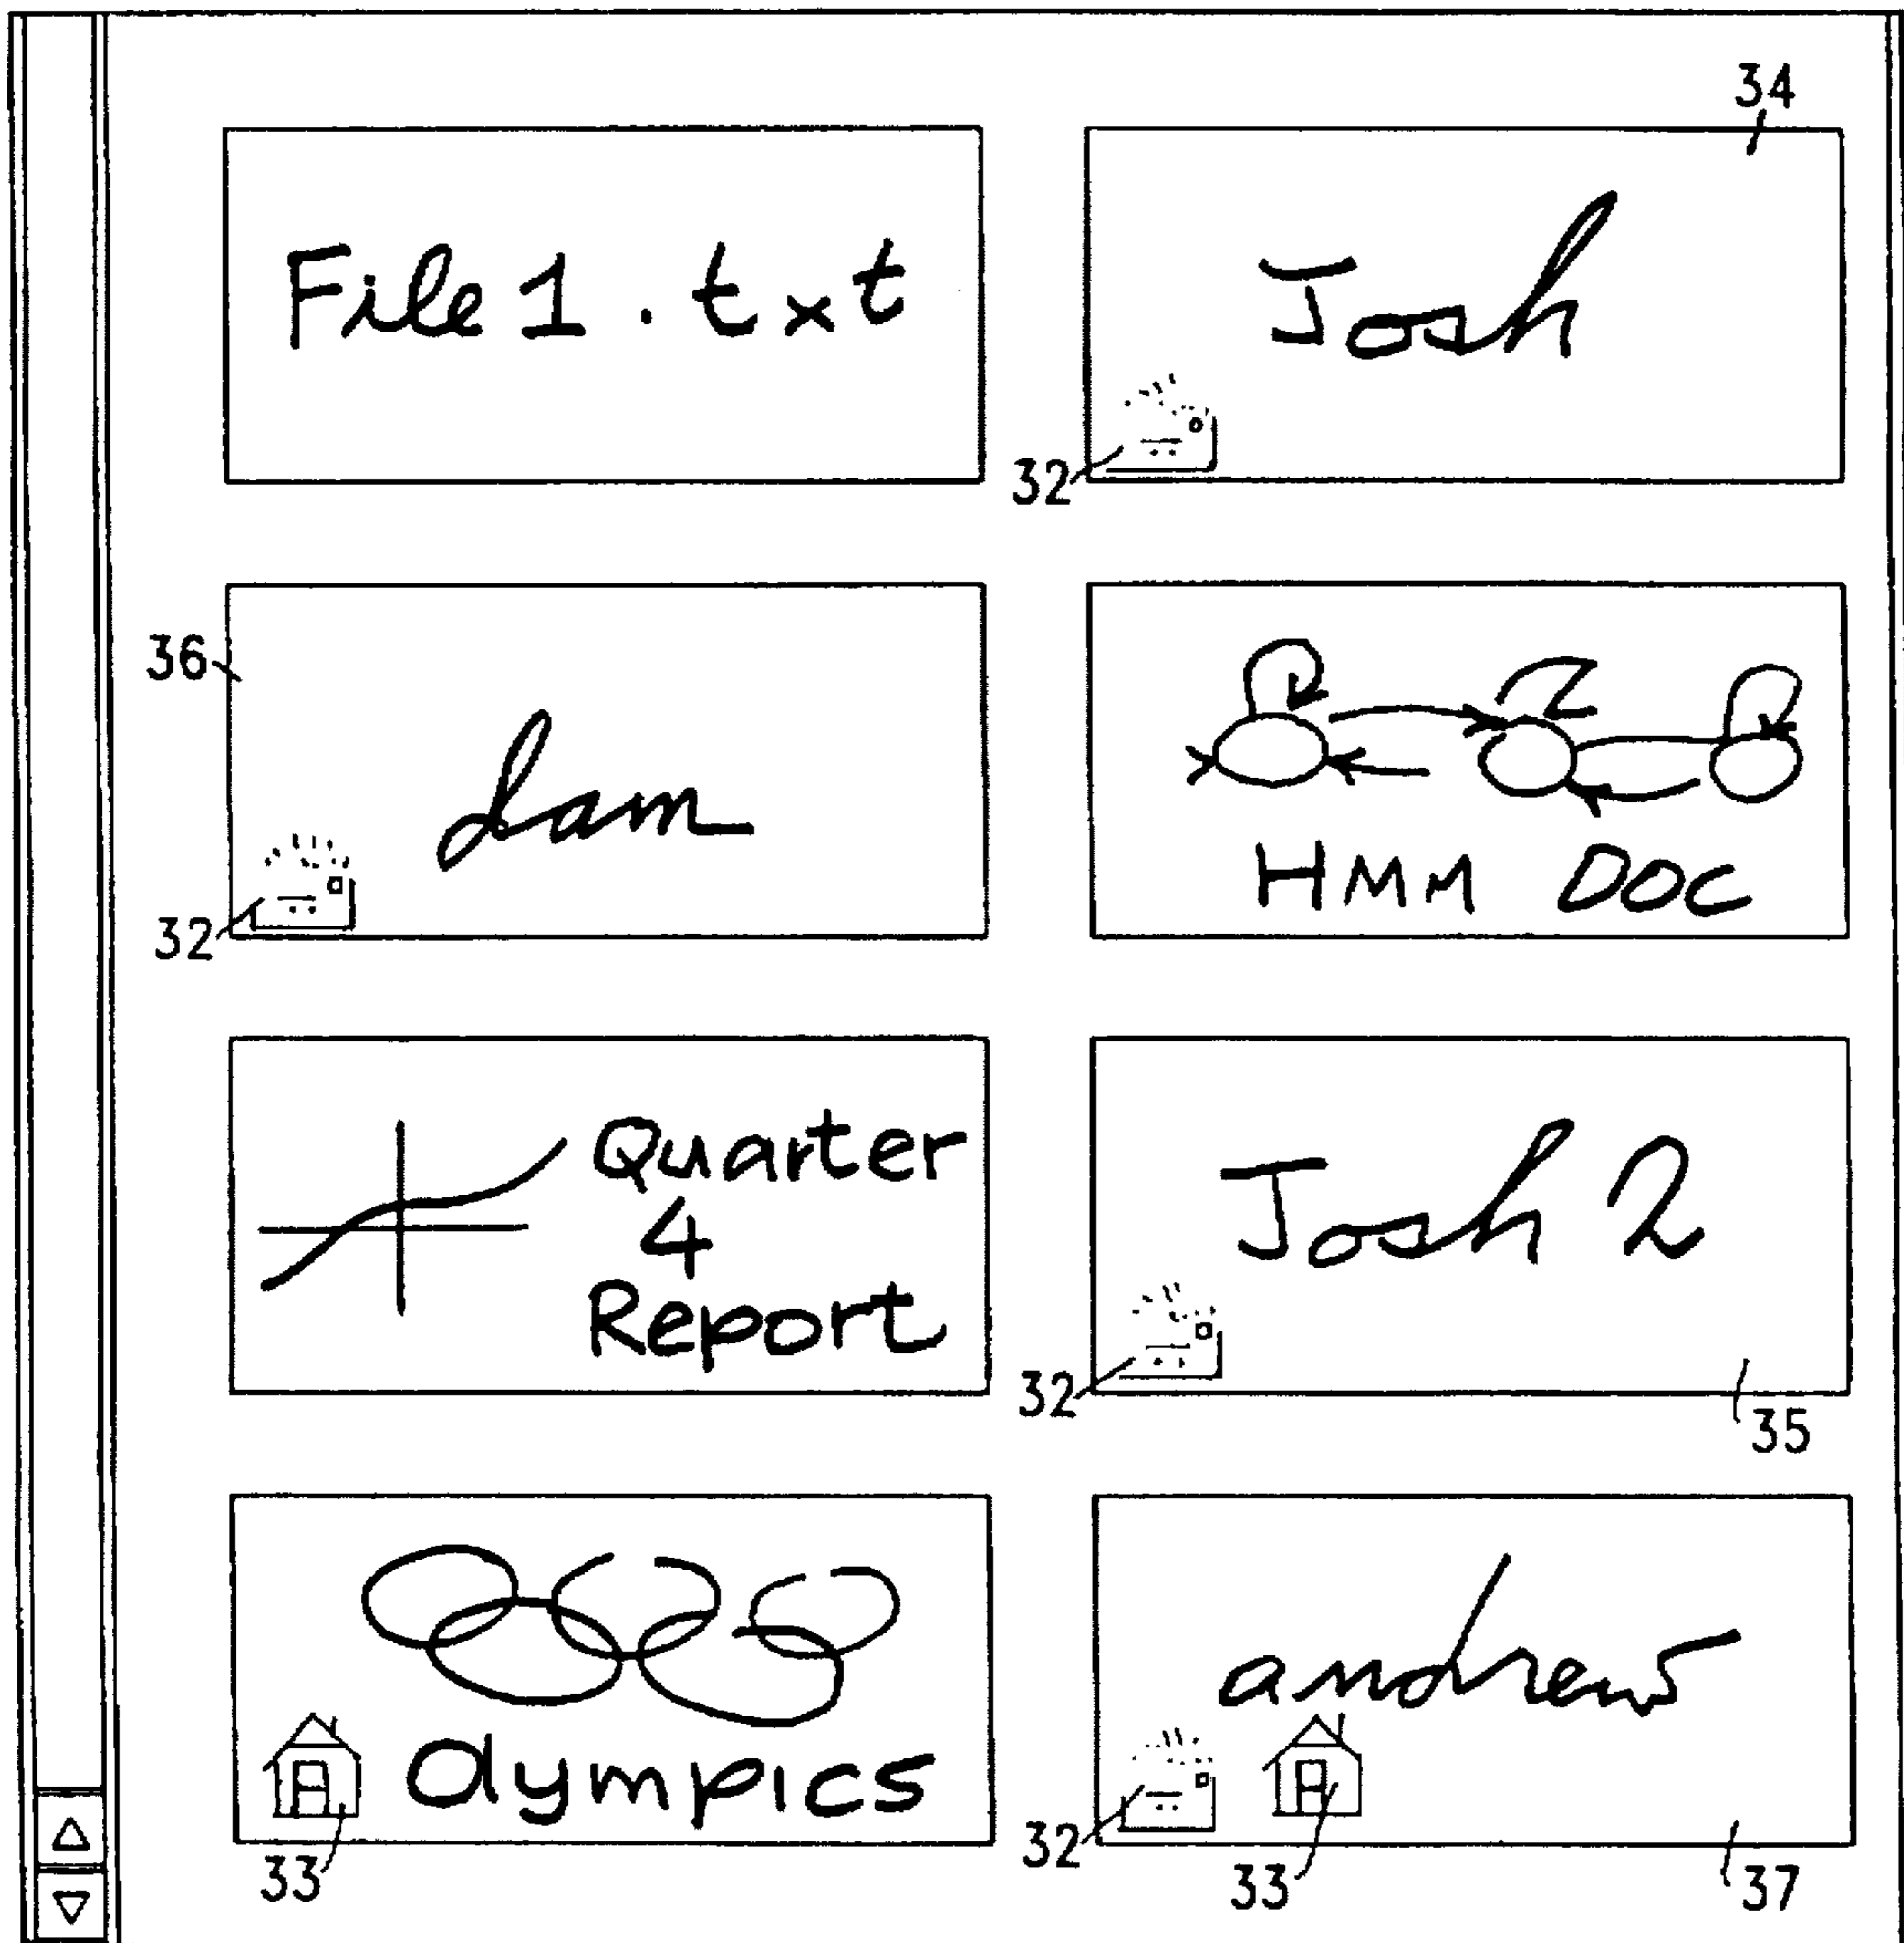 34
File 1 . txt
Josh
32
36
Sam
32
HMM DOC
Quarter
4
Report
Josh 2
32
35
Olympics
33
andrew
32
33
37